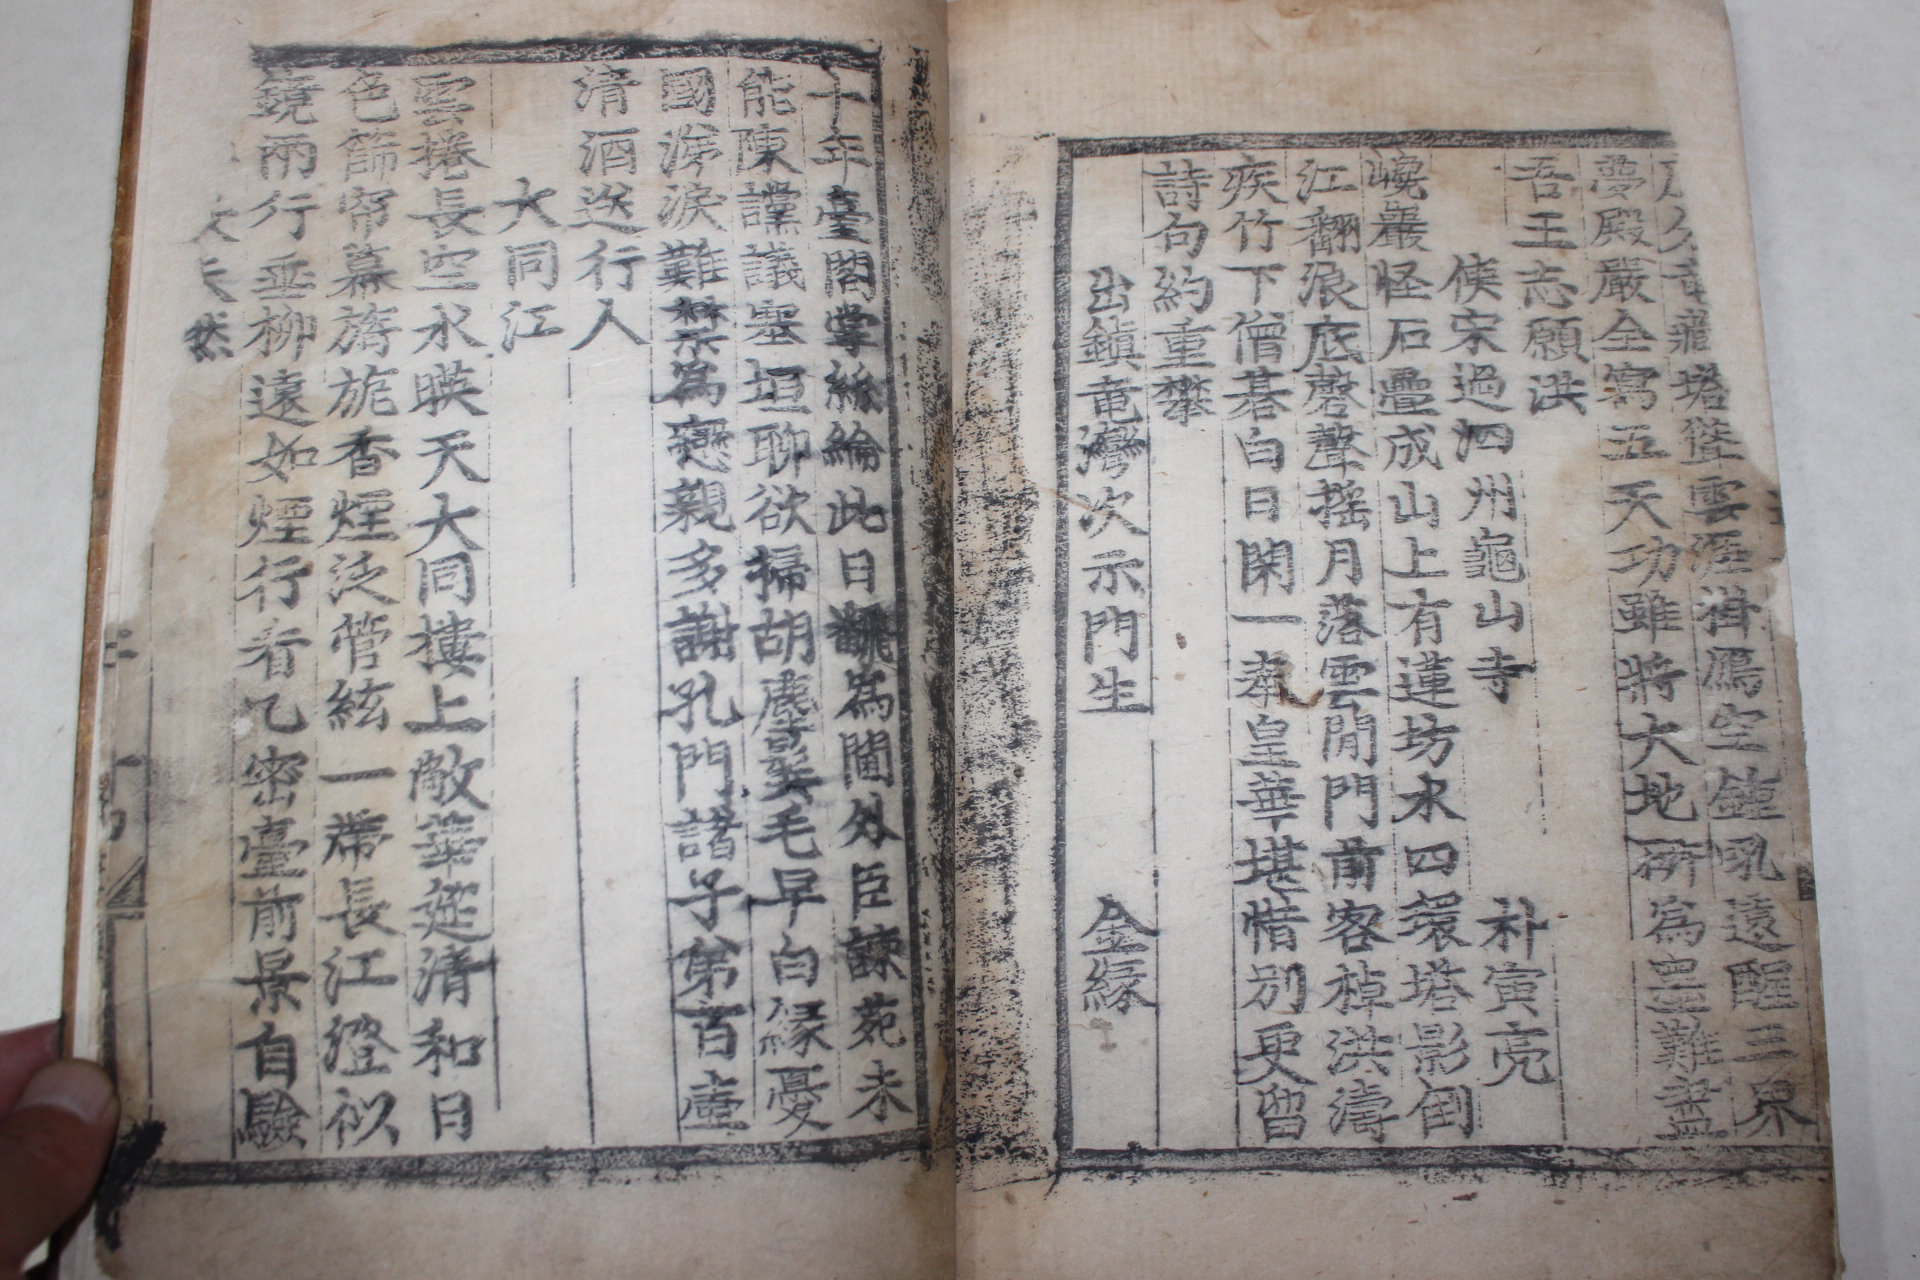 塔聳雲涯揖鴈空鍾吼遠醒三界
夢殿嚴全寫五天功雖將大地所為墨難盡
吾王志願洪
使宋過泗州龜山寺 朴寅亮
巉巖怪石疊成山上有蓮坊水四環塔影倒
江翻浪底磬聲搖月落雲間門前客棹洪濤
疾竹下僧碁白日閑一奉皇華堪惜別更留
詩句約重攀
出鎮竜灣次示門生 金緣
十年臺閣掌絲綸此日翻為閫外臣諫苑未
能陳讜議塞垣聊欲掃胡塵鬢毛早白緣憂
國涕淚難禁為戀親多謝孔門諸子弟百壺
清酒送行人
大同江
雲捲長空水暎天大同樓上敞華筵清和日
色篩帘幕旖旎香煙泛管絃一帶長江澄似
鏡兩行垂柳遠如煙行看乙密臺前景自驗
然